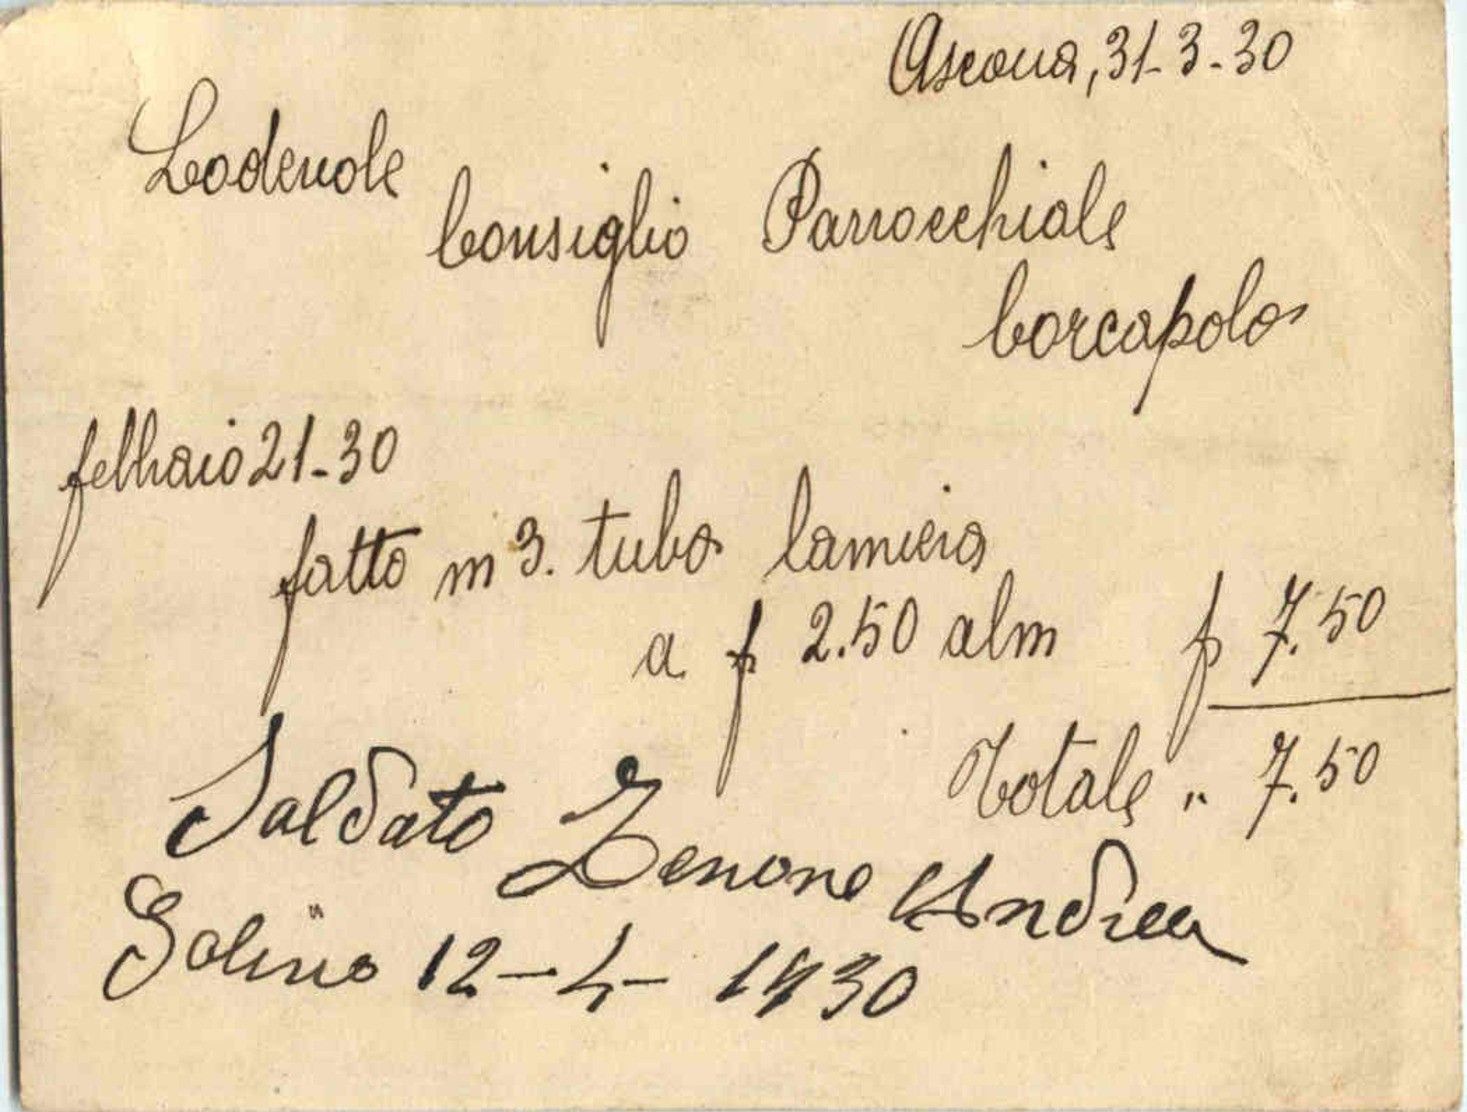 Ascona, 31-3-30
Lodevole
Consiglio Parrocchiale
Corcapolo
febbraio 21-30
fatto m 3. tubo lamiera
a f 2.50 al m f 7.50
Totale " 7.50
Saldato Zenone Andrea
Golino 12-4-1930